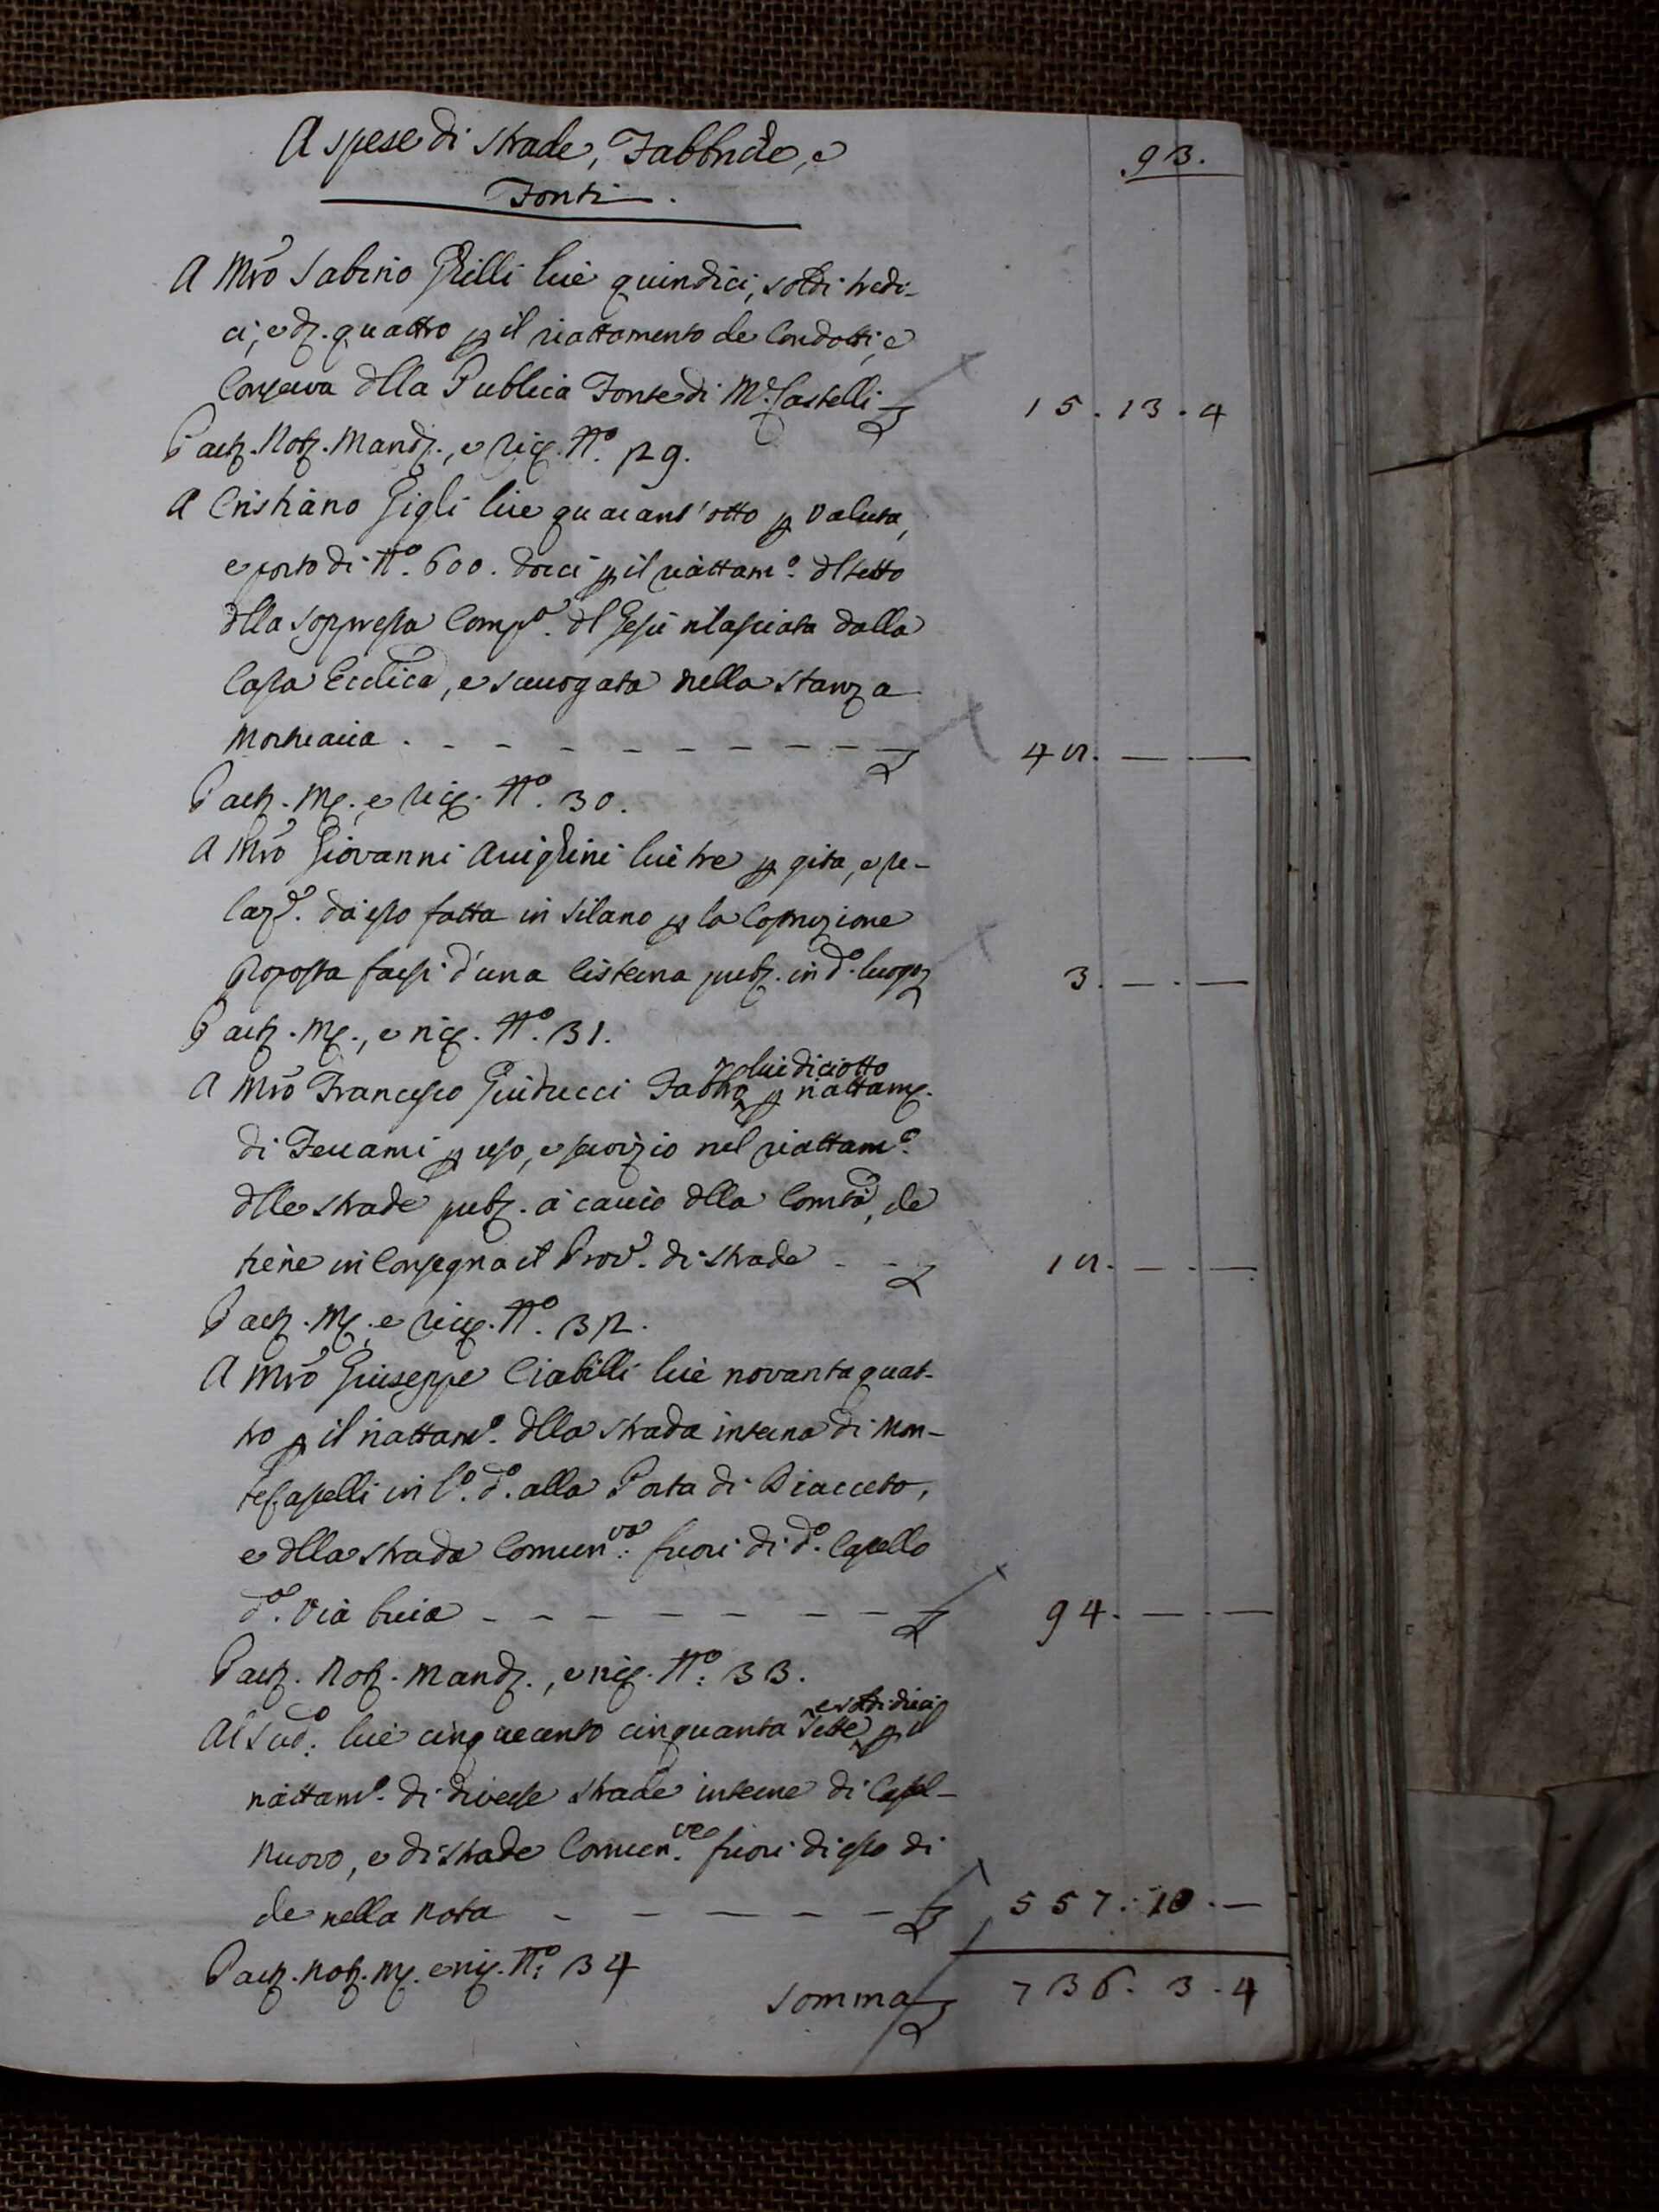 A spese di strade, Fabbriche, e
Fonti.
93.
A Mro Sabino Grilli lire quindici, soldi tredi-
ci, e d. quattro p il riattamento de Condotti, e
Conserva dlla Publica Fonte di M. Castelli
15.13.4
Part. Not. Mand., e ric. No. 29.
A Cristiano Gigli lire quarant'otto p valuta,
e porto di No. 600. docci p il riattamo. dl tetto
dlla soppressa Compa. dl Gesù rilasciata dalla
Cassa Ecclica, e surrogata nella stanza
Mortuaria . - - - - - - - -
48. — . —
Part. M. e ric. No. 30.
A Mro Giovanni Arrighini lire tre p gita, e re-
laze. da esso fatta in Silano p la Costruzione
proposta farsi d'una Cisterna pub. in do. luogo
3. — . —
Part. M., e ric. No. 31.
A Mro Francesco Guiducci Fabbro lire diciotto p riattam.
di Ferrami p uso, e servizio nel riattamo.
dlle strade pub. a carico dlla Comtà, che
tiene in Consegna il Prove. di strade - -
18. — . —
Part. M. e ric. No. 32.
A Mro Giuseppe Ciabilli lire novantaquat-
tro p il riattamo. dlla strada interna di Mon-
te Castelli in Lo. do. alla Porta di Diacceto,
e dlla strada Comunva. fuori di do. Castello
da. Via buia - - - - - - - -
94. — . —
Part. Not. Mand., e ric. No. 33.
Al sudo. lire cinquecento cinquanta sette e soldi dieci p il
riattamo. di diverse strade interne di Castel-
nuovo, e di strade Comunve. fuori di esso di
che nella nota - - - - - -
557.10. —
Part. Not. M. e ric. No. 34
Somma 736. 3. 4